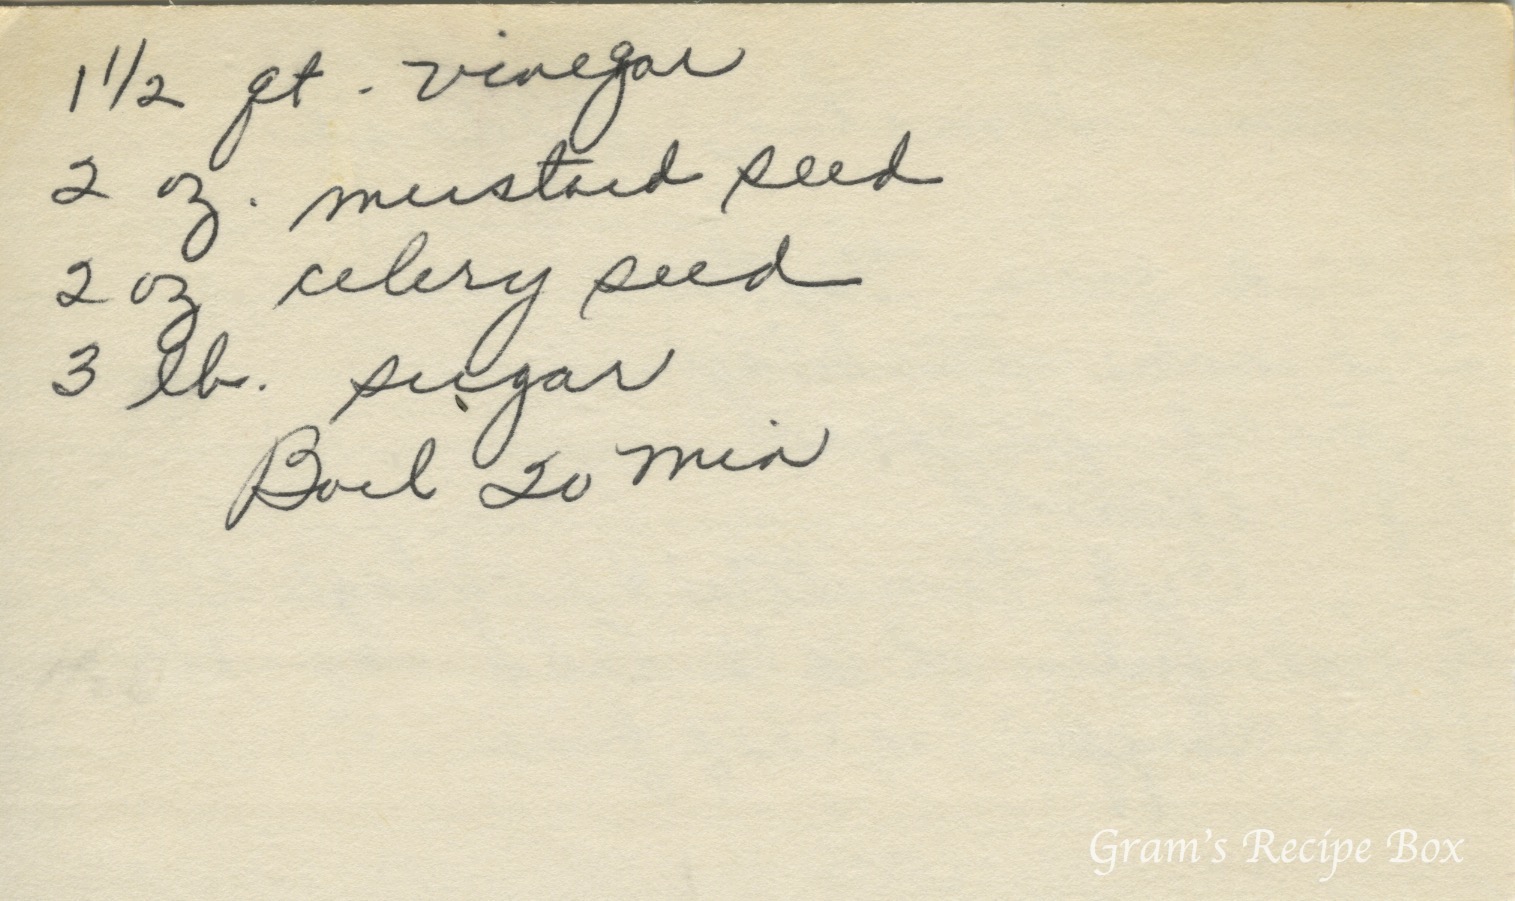 1 1/2 qt. vinegar
2 oz. mustard seed
2 oz celery seed
3 lb. sugar
Boil 20 min
Gram's Recipe Box